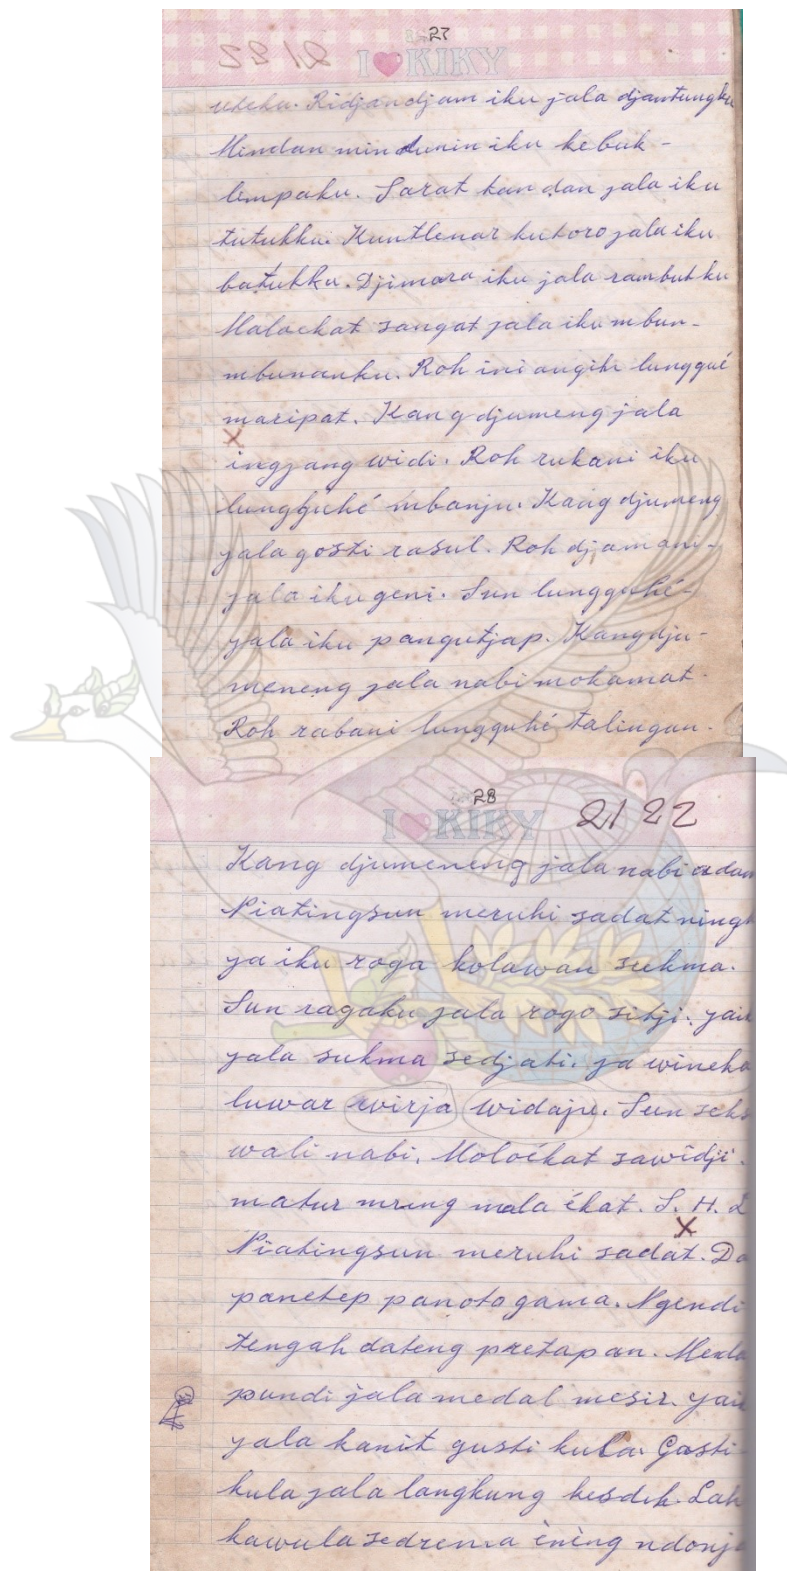 27
I ❤ KIKY
uteku. Ridjandjam iku jala djantungku
Mindan mindunin iku kebuk-
lempaku. Sarat kandan jala iku
tutukku. Kuntlenar kutoro jala iku
batukku. Djimara iku jala rambutku
Malaekat sangat jala iku mbun-
mbunanku. Roh ini angibi lunggué
maripat. Kang djumeng jala
inggjang widi. Roh rukani iku
lungguhé mbanju. Kang djumeng
jala gosti rasul. Roh djamani-
jala iku geni. Sun lungguhé-
jala iku pangutjap. Kang dju-
meneng jala nabi mokamat.
Roh rabani lungguhé talingan.
28
I ❤ KIKY 2122
Kang djumeneng jala nabi adam
Niatingsun meruhi sadat
ya iku roga kolawan sukma.
Sun ragaku jala rogo sitji.
jala sukma sedjati. ja
luwar wirja widaju. Sun
wali nabi. Moloékat sawidji.
matur mring mala ékat. S. H.
Niatingsun meruhi sadat.
panetep panotogama. Ngendi
tengah dateng pretapan.
pundi jala medal mesir.
jala kanit gusti kula. Gosti
kula jala langkung kesdik.
kawula sedrema éning